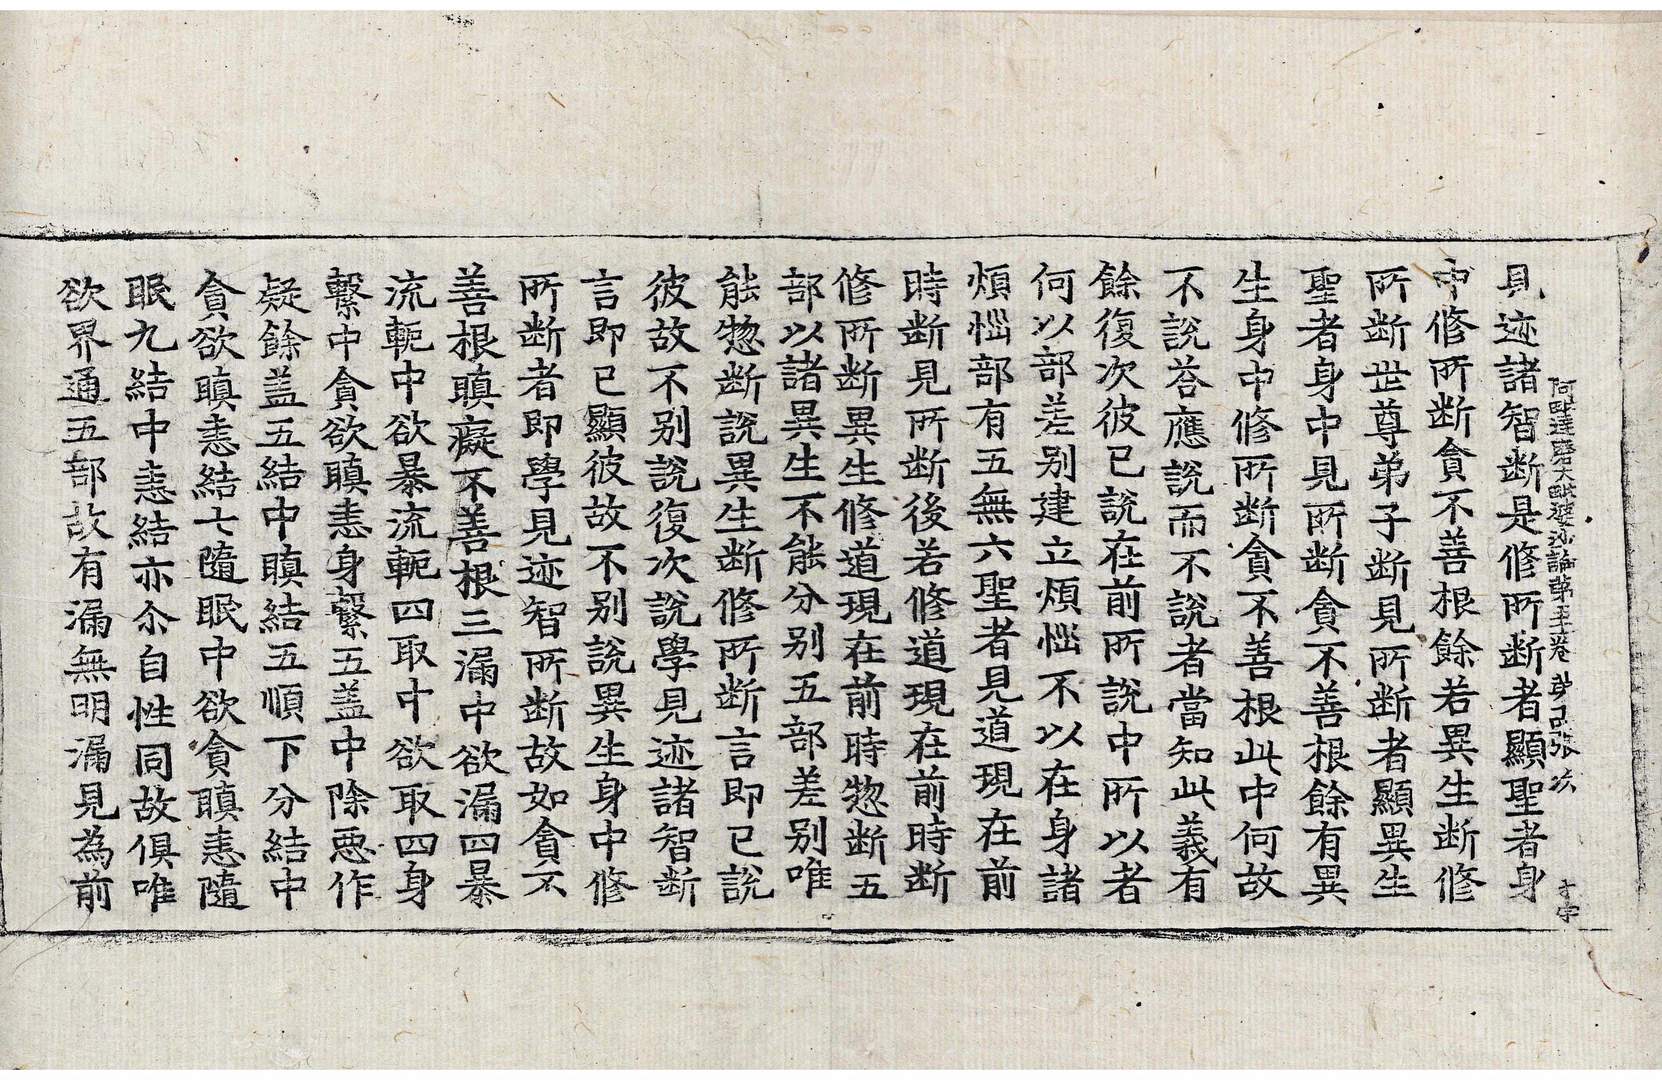 阿毗達磨大毗婆沙論第五十一卷 第四張 次 才字
見迹諸智断是修所断者顯聖者身
中修所断貪不善根餘若異生断修
所断世尊弟子断見所断者顯異生
聖者身中見所断貪不善根餘有異
生身中修所断貪不善根此中何故
不說荅應說而不說者當知此義有
餘復次彼已說在前所說中所以者
何以部差别建立煩惱不以在身諸
煩惱部有五無六聖者見道現在前
時断見所断後若修道現在前時断
修所断異生修道現在前時惣断五
部以諸異生不能分别五部差别唯
能惣断說異生断修所断言即已說
彼故不别說復次說學見迹諸智断
言即已顯彼故不别說異生身中修
所断者即學見迹智所断故如貪不
善根瞋癡不善根三漏中欲漏四暴
流軛中欲暴流軛四取中欲取四身
繫中貪欲瞋恚身繫五盖中除惡作
疑餘盖五結中瞋結五順下分結中
貪欲瞋恚結七隨眠中欲貪瞋恚隨
眠九結中恚結亦尒自性同故俱唯
欲界通五部故有漏無明漏見為前